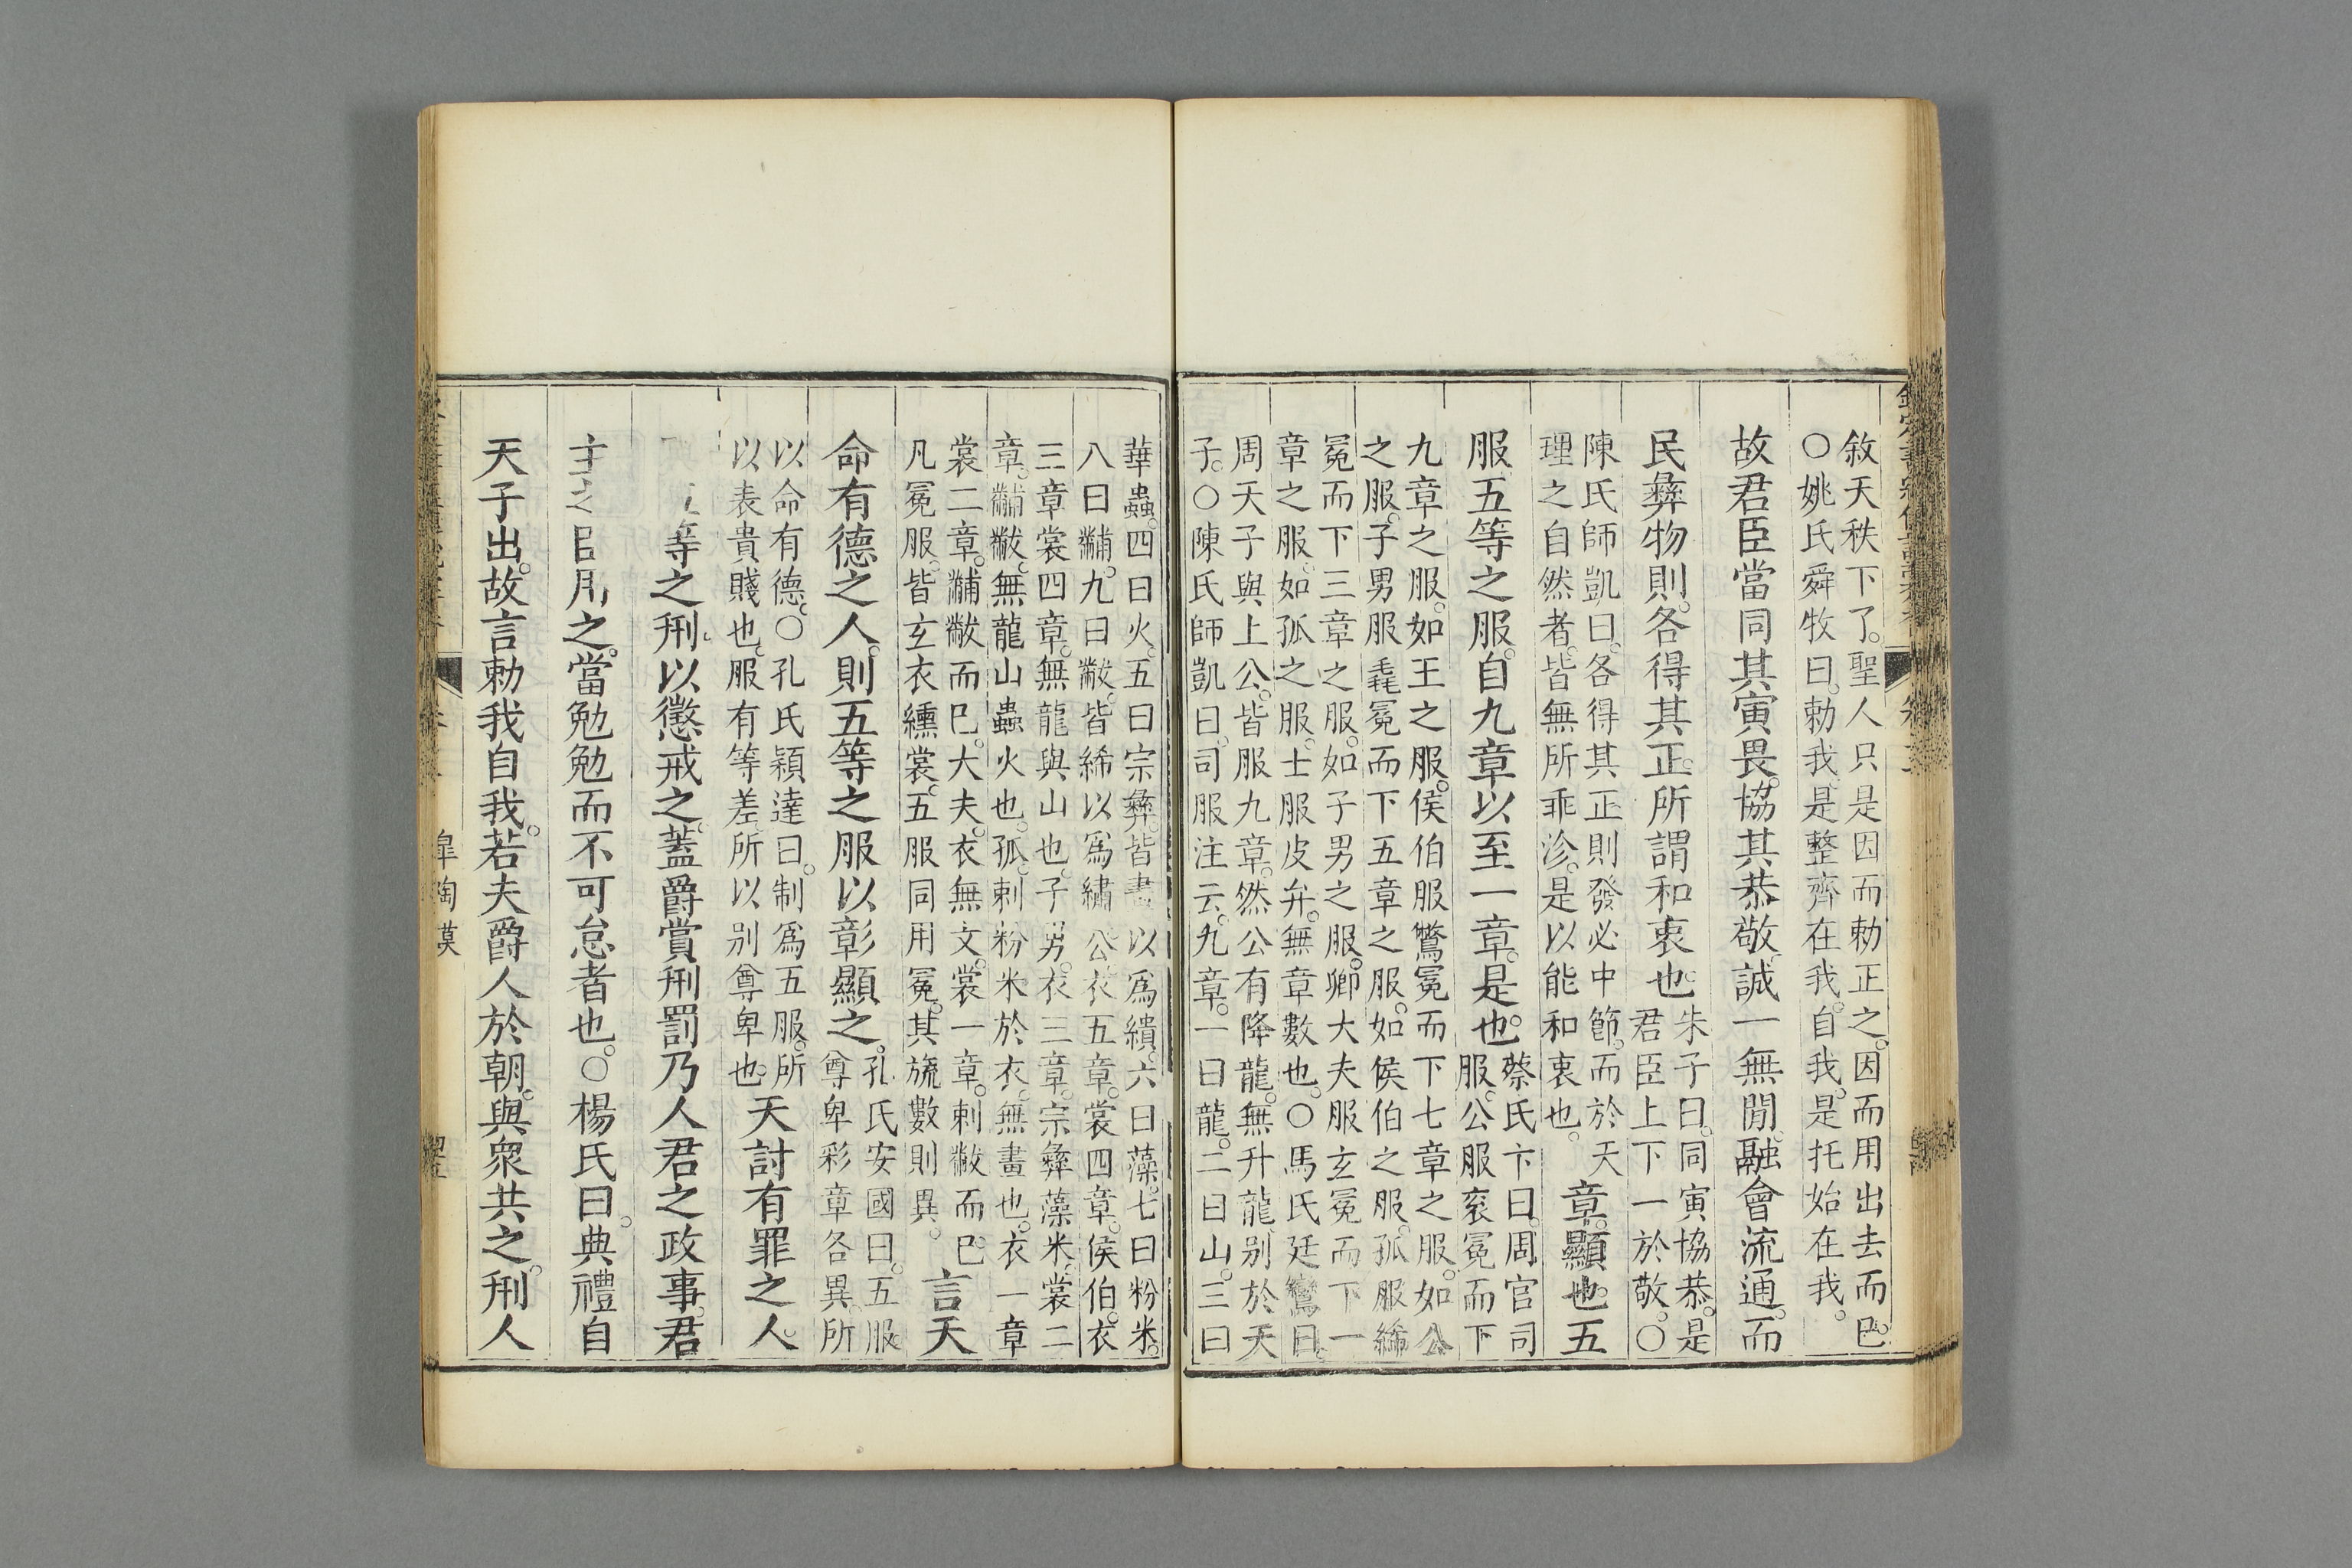 敘天秩下了。聖人只是因而勅正之。因而用出去而已。
○姚氏舜牧曰。勅我。是整齊在我。自我。是托始在我。
故君臣當同其寅畏。協其恭敬。誠一無閒。融會流通。而
民彝物則。各得其正。所謂和衷也。
朱子曰。同寅協恭。是
君臣上下一於敬。○
陳氏師凱曰。各得其正則發必中節。而於天
理之自然者。皆無所乖沴。是以能和衷也。
章。顯也。五
服。五等之服。自九章以至一章。是也。
蔡氏卞曰。周官司
服。公服衮冕而下
九章之服。如王之服。侯伯服鷩冕而下七章之服。如公
之服。子男服毳冕而下五章之服。如侯伯之服。孤服絺
冕而下三章之服。如子男之服。卿大夫服玄冕而下一
章之服。如孤之服。士服皮弁。無章數也。○馬氏廷鸞曰。
周天子與上公。皆服九章。然公有降龍。無升龍。別於天
子。○陳氏師凱曰。司服注云。九章。一曰龍。二曰山。三曰
華蟲。四曰火。五曰宗彝。皆畫以爲繢。六曰藻。七曰粉米。
八曰黼。九曰黻。皆絺以爲繡。公衣五章。裳四章。侯伯。衣
三章裳四章。無龍與山也。子男。衣三章。宗彝藻米。裳二
章。黼黻。無龍山蟲火也。孤。刺粉米於衣。無畫也。衣一章
裳二章。黼黻而已。大夫。衣無文。裳一章。刺黻而已。
凡冕服。皆玄衣纁裳。五服同用冕。其旒數則異。
言天
命有德之人。則五等之服以彰顯之。
孔氏安國曰。五服。
尊卑彩章各異。所
以命有德。○孔氏穎達曰。制爲五服。所
以表貴賤也。服有等差。所以别尊卑也。
天討有罪之人。
等之刑。以懲戒之。蓋爵賞刑罰乃人君之政事。君
之。當勉勉而不可怠者也。○楊氏曰。典禮自
天子出。故言勅我自我。若夫爵人於朝。與衆共之。刑人
皐陶謨